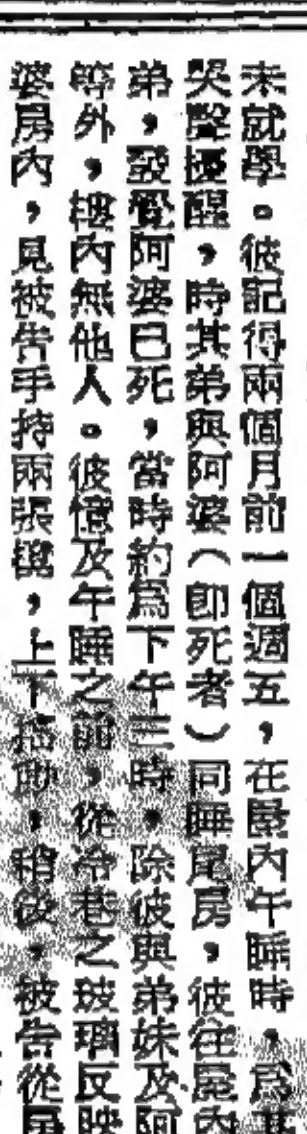 未就學。彼記得兩個月前一個週五,在屋內午睡時,爲其
哭聲擾醒,時其弟與阿婆(即死者)同睡尾房,彼往屋內
弟,發覺阿婆已死,當時約爲下午三時,除彼與弟妹及阿
等外,樓內無他人。彼憶及午睡之前,從冷巷之玻璃反映
婆房內,見被告手持兩張櫈,上下搖動,稍後,被告從屋